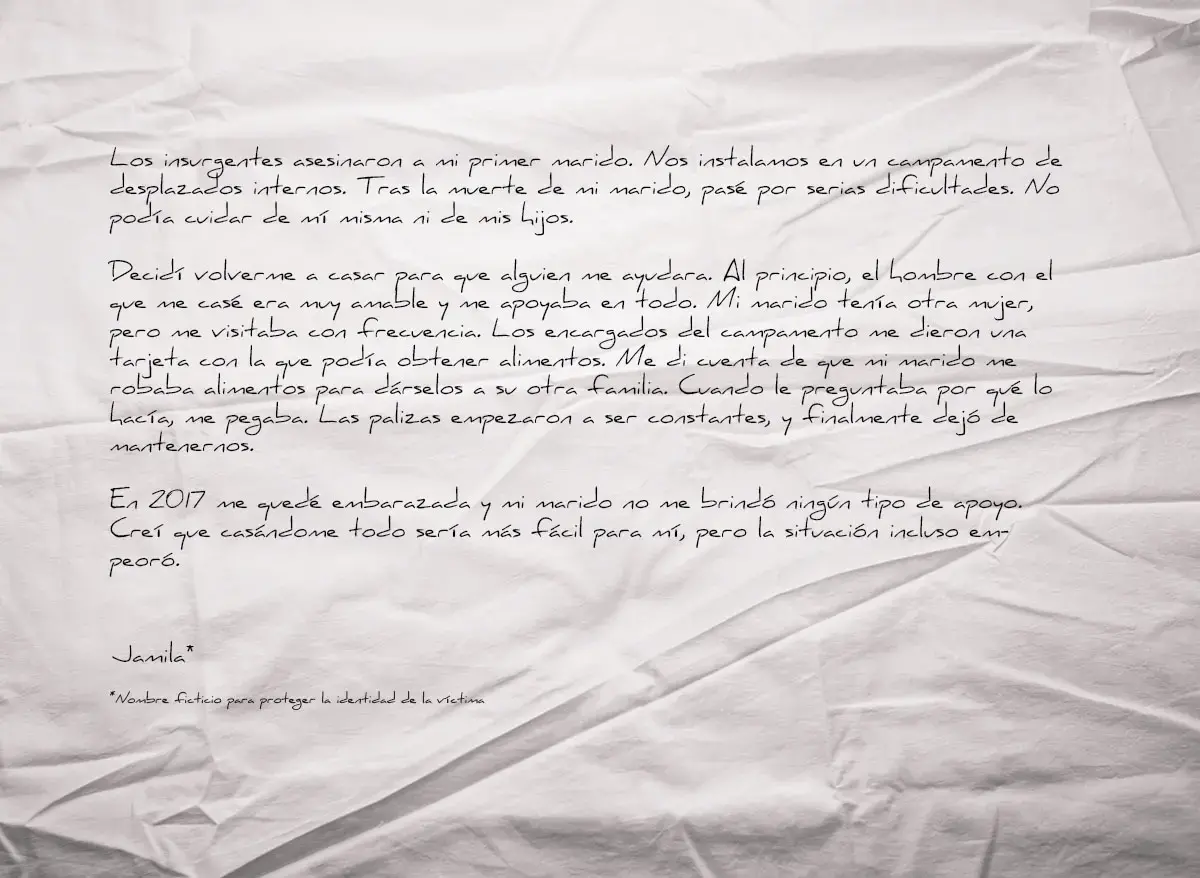 Los insurgentes asesinaron a mi primer marido. Nos instalamos en un campamento de
desplazados internos. Tras la muerte de mi marido, pasé por serias dificultades. No
podía cuidar de mí misma ni de mis hijos.
Decidí volverme a casar para que alguien me ayudara. Al principio, el hombre con el
que me casé era muy amable y me apoyaba en todo. Mi marido tenía otra mujer,
pero me visitaba con frecuencia. Los encargados del campamento me dieron una
tarjeta con la que podía obtener alimentos. Me di cuenta de que mi marido me
robaba alimentos para dárselos a su otra familia. Cuando le preguntaba por qué lo
hacía, me pegaba. Las palizas empezaron a ser constantes, y finalmente dejó de
mantenernos.
En 2017 me quedé embarazada y mi marido no me brindó ningún tipo de apoyo.
Creí que casándome todo sería más fácil para mí, pero la situación incluso em-
peoró.
Jamila*
*Nombre ficticio para proteger la identidad de la víctima